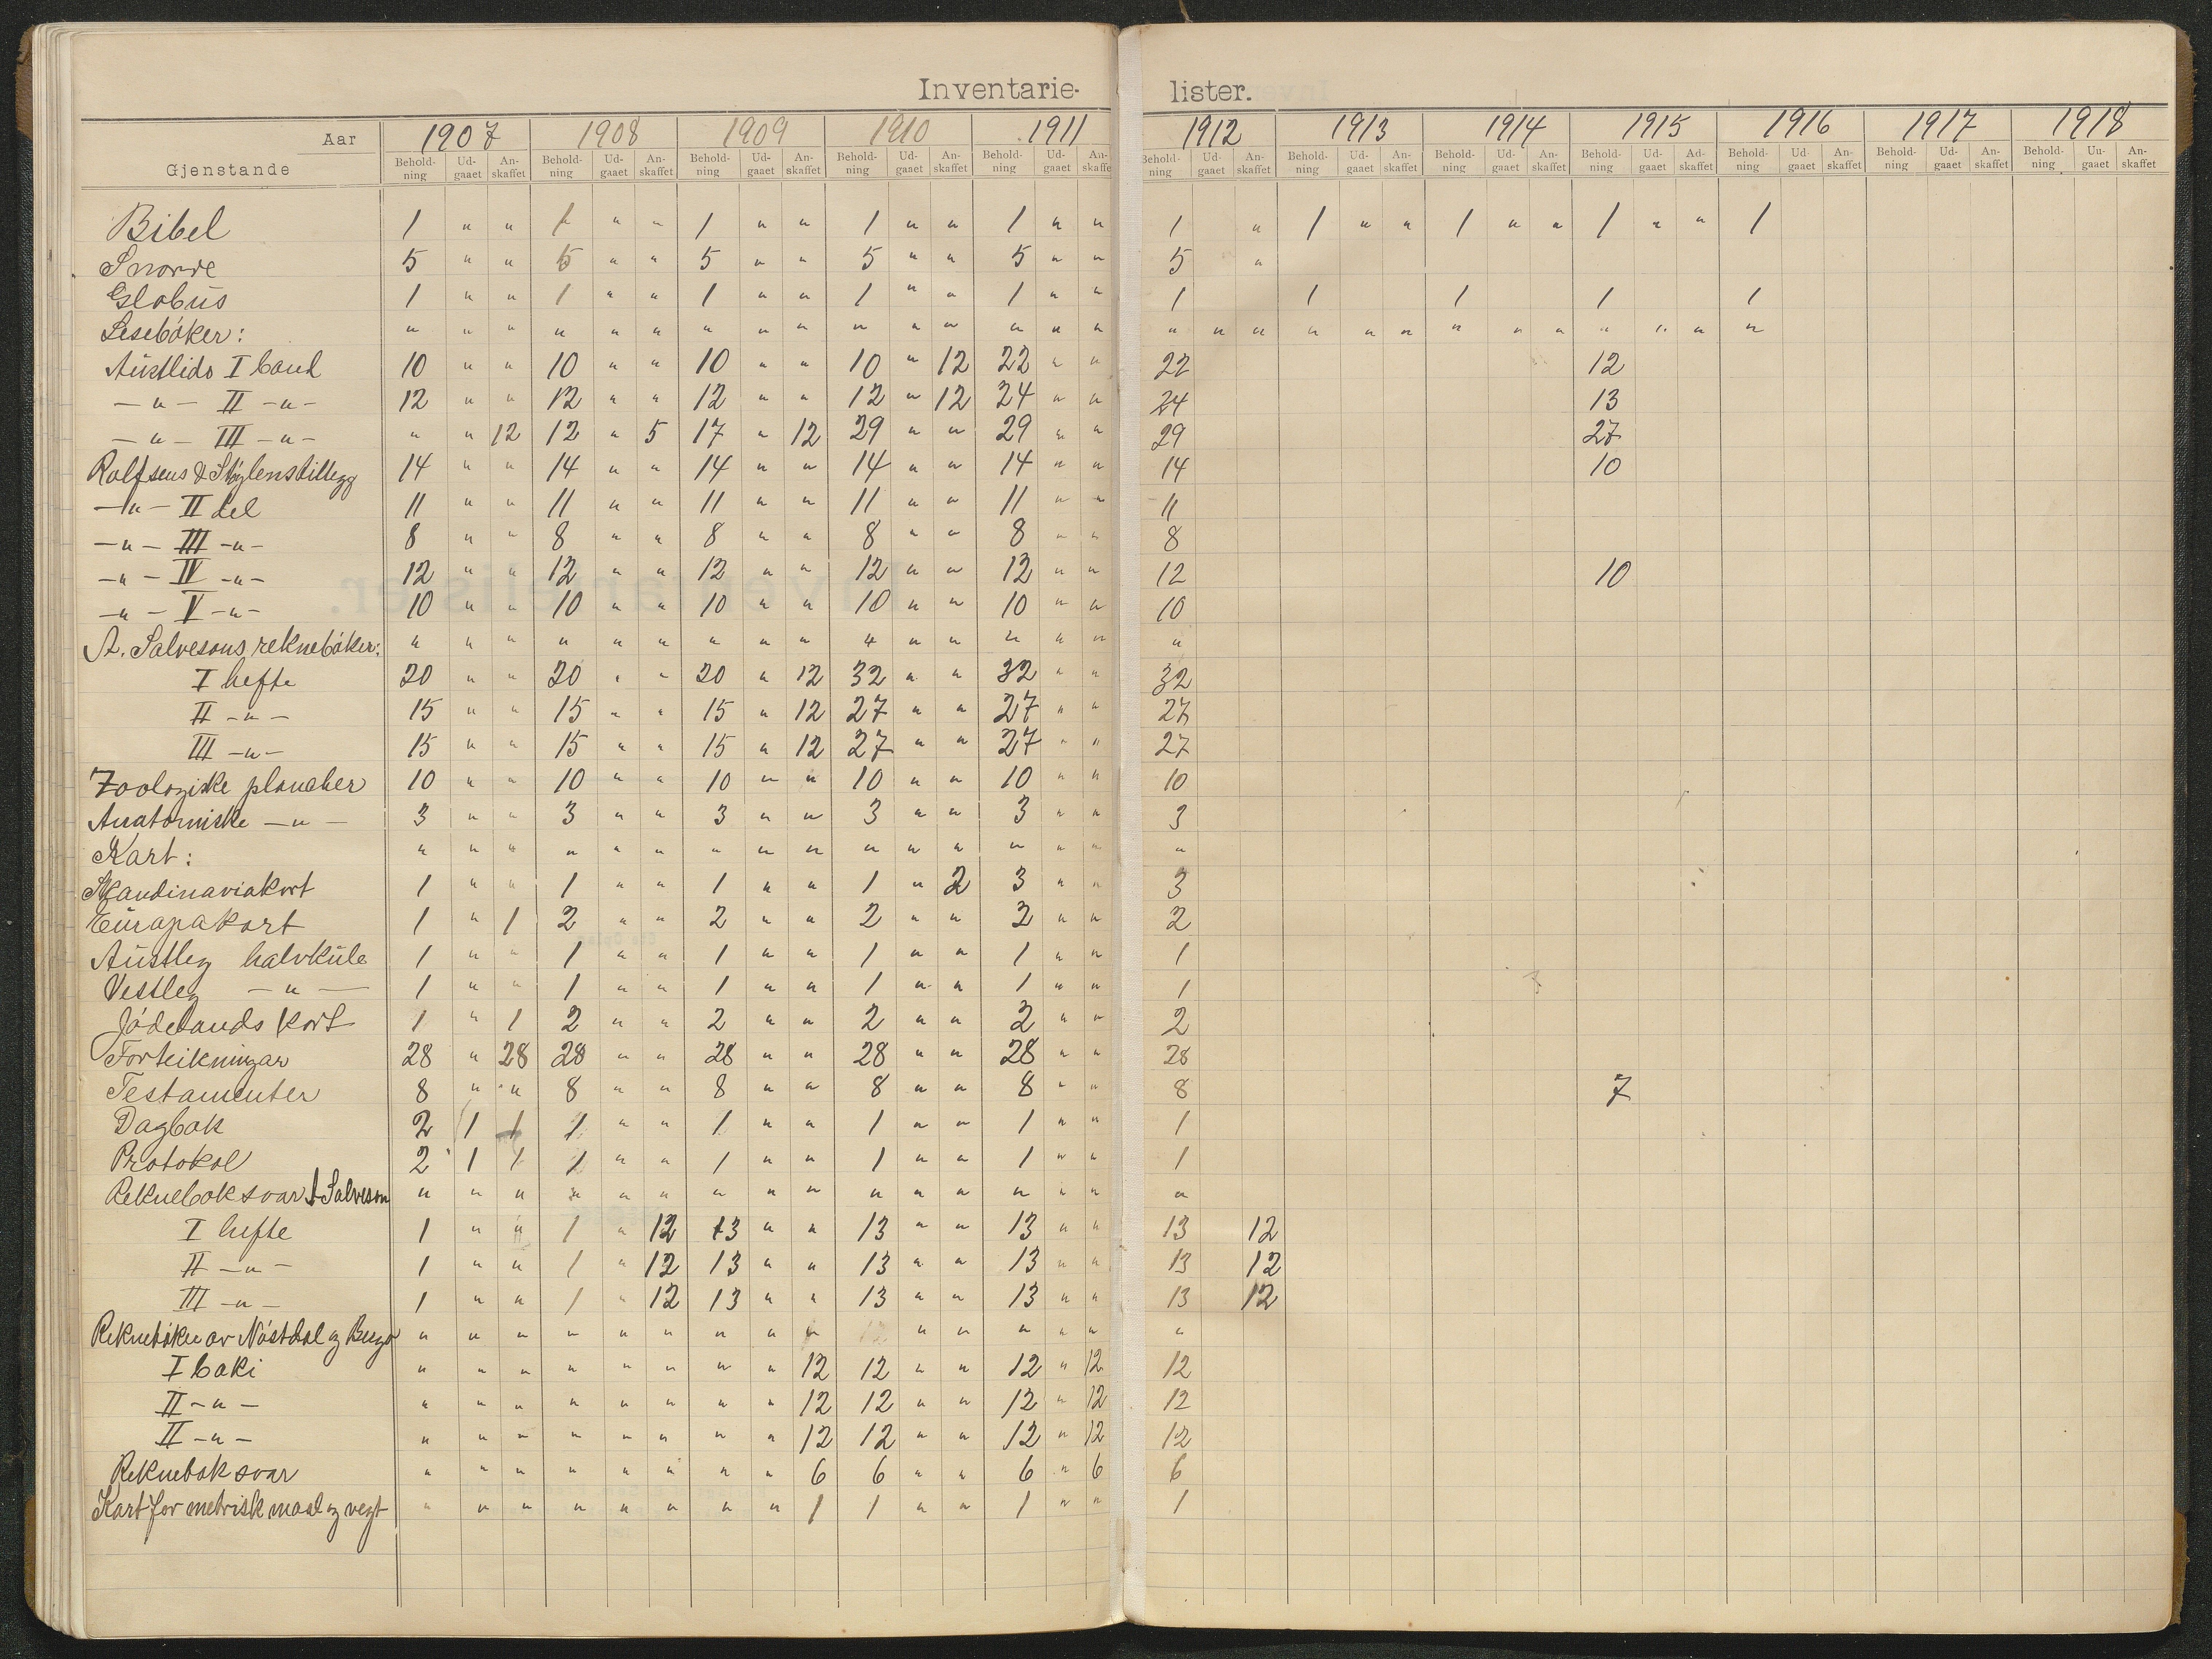 Inventarie- lister.
Aar 1907 1908 1909 1910 1911 1912 1913 1914 1915 1916 1917 1918
Gjenstande Behold-ning Ud-gaaet An-skaffet Behold-ning Ud-gaaet An-skaffet Behold-ning Ud-gaaet An-skaffet Behold-ning Ud-gaaet An-skaffet Behold-ning Ud-gaaet An-skaffet Behold-ning Ud-gaaet An-skaffet Behold-ning Ud-gaaet An-skaffet Behold-ning Ud-gaaet An-skaffet Behold-ning Ud-gaaet Ad-skaffet Behold-ning Ud-gaaet An-skaffet Behold-ning Ud-gaaet An-skaffet Behold-ning Un-gaaet An-skaffet
Bibel 1 " " 1 " " 1 " " 1 " " 1 " " 1 " 1 " " 1 " " 1 " " 1
Snorre 5 " " 5 " " 5 " " 5 " " 5 " " 5 "
Globus 1 " " 1 " " 1 " " 1 " " 1 " " 1 1 1 1 1
Lesebóker: " " " " " " " " " " " " " " " " " " " " " " " " " " " "
Austlids I band 10 " " 10 " " 10 " " 10 " 12 22 " " 22 12
— " — II — " — 12 " " 12 " " 12 " " 12 " 12 24 " " 24 13
— " — III — " — " " 12 12 " 5 17 " 12 29 " " 29 " " 29 27
Rolfsens & Stylenstillegg 14 " " 14 " " 14 " " 14 " " 14 " " 14 10
— " — II del 11 " " 11 " " 11 " " 11 " " 11 " " 11
— " — III — " — 8 " " 8 " " 8 " " 8 " " 8 " " 8
— " — IV — " — 12 " " 12 " " 12 " " 12 " " 12 " " 12 10
— " — V — " — 10 " " 10 " " 10 " " 10 " " 10 " " 10
A. Salvesons reknebóker: " " " " " " " " " " " " " " " "
I hefte 20 " " 20 " " 20 " 12 32 " " 32 " " 32
II — " — 15 " " 15 " " 15 " 12 27 " " 27 " " 27
III — " — 15 " " 15 " " 15 " 12 27 " " 27 " " 27
Zoologiske plancher 10 " " 10 " " 10 " " 10 " " 10 " " 10
Anatomiske — " — 3 " " 3 " " 3 " " 3 " " 3 " " 3
Kart: " " " " " " " " " " " " " " " "
Skandinaviakort 1 " " 1 " " 1 " " 1 " 2 3 " " 3
Europakort 1 " 1 2 " " 2 " " 2 " " 2 " " 2
Austleg halvkule 1 " " 1 " " 1 " " 1 " " 1 " " 1
Vestleg — " — 1 " " 1 " " 1 " " 1 " " 1 " " 1
Jódelands kort 1 " 1 2 " " 2 " " 2 " " 2 " " 2
Forteikningar 28 " 28 28 " " 28 " " 28 " " 28 " " 28
Testamenter 8 " " 8 " " 8 " " 8 " " 8 " " 8 7
Dagbok 2 1 1 1 " " 1 " " 1 " " 1 " " 1
Protokol 2 1 1 1 " " 1 " " 1 " " 1 " " 1
Rekneboksvar A Salveson " " " " " " " " " " " " " " " "
I hefte 1 " " 1 " 12 13 " " 13 " " 13 " " 13 12
II — " — 1 " " 1 " 12 13 " " 13 " " 13 " " 13 12
III — " — 1 " " 1 " 12 13 " " 13 " " 13 " " 13 12
Reknebóker av Nóstdal og " " " " " " " " " " " " " " "
I boki " " " " " " " " 12 12 " " 12 " 12 12
II — " — " " " " " " " " 12 12 " " 12 " 12 12
II — " — " " " " " " " " 12 12 " " 12 " 12 12
Rekneboksvar " " " " " " " " 6 6 " " 6 " 6 6
Kart for metrisk maal og vegt " " " " " " " " 1 1 " " 1 " " 1